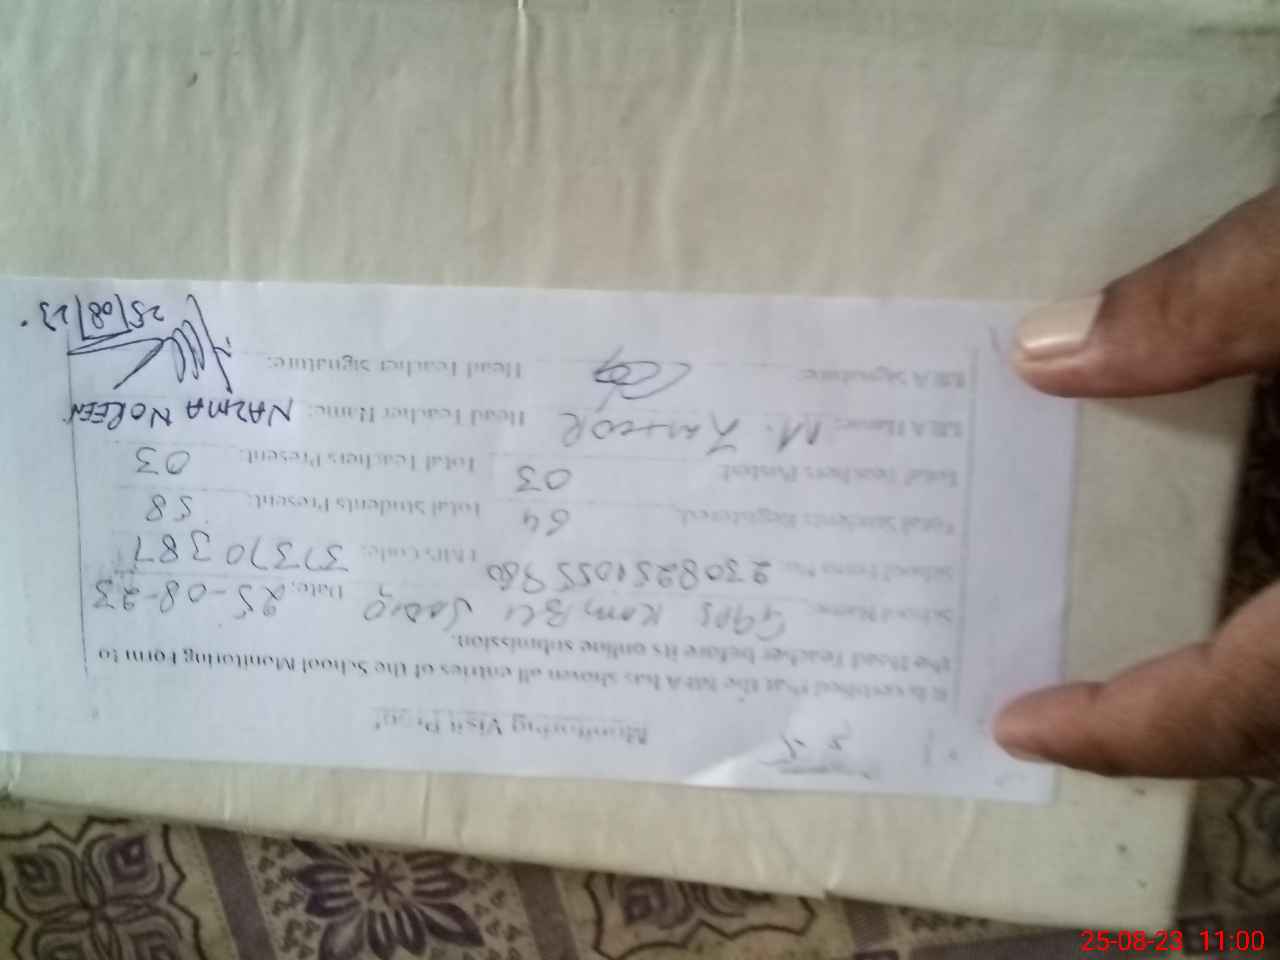 Monitoring Visit Proof
It is certified that the MEA has shown all entries of the School Monitoring Form to
the Head Teacher before its online submission.
School Name: GGPS Date: 25-08-23
School Form No: EMIS Code: 37370387
Total Students Registered: 64 Total Students Present: 58
Total Teachers Posted: 03 Total Teachers Present: 03
MEA Name: M. Head Teacher Name: NAZMA NOREEN
MEA Signature: Head Teacher Signature:
25/08/23
25-08-23 11:00